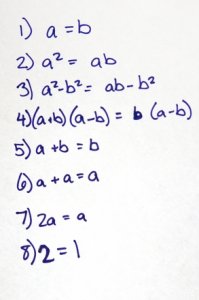 1) a = b
2) a² = ab
3) a²-b² = ab-b²
4) (a+b)(a-b) = b (a-b)
5) a + b = b
6) a + a = a
7) 2a = a
8) 2 = 1